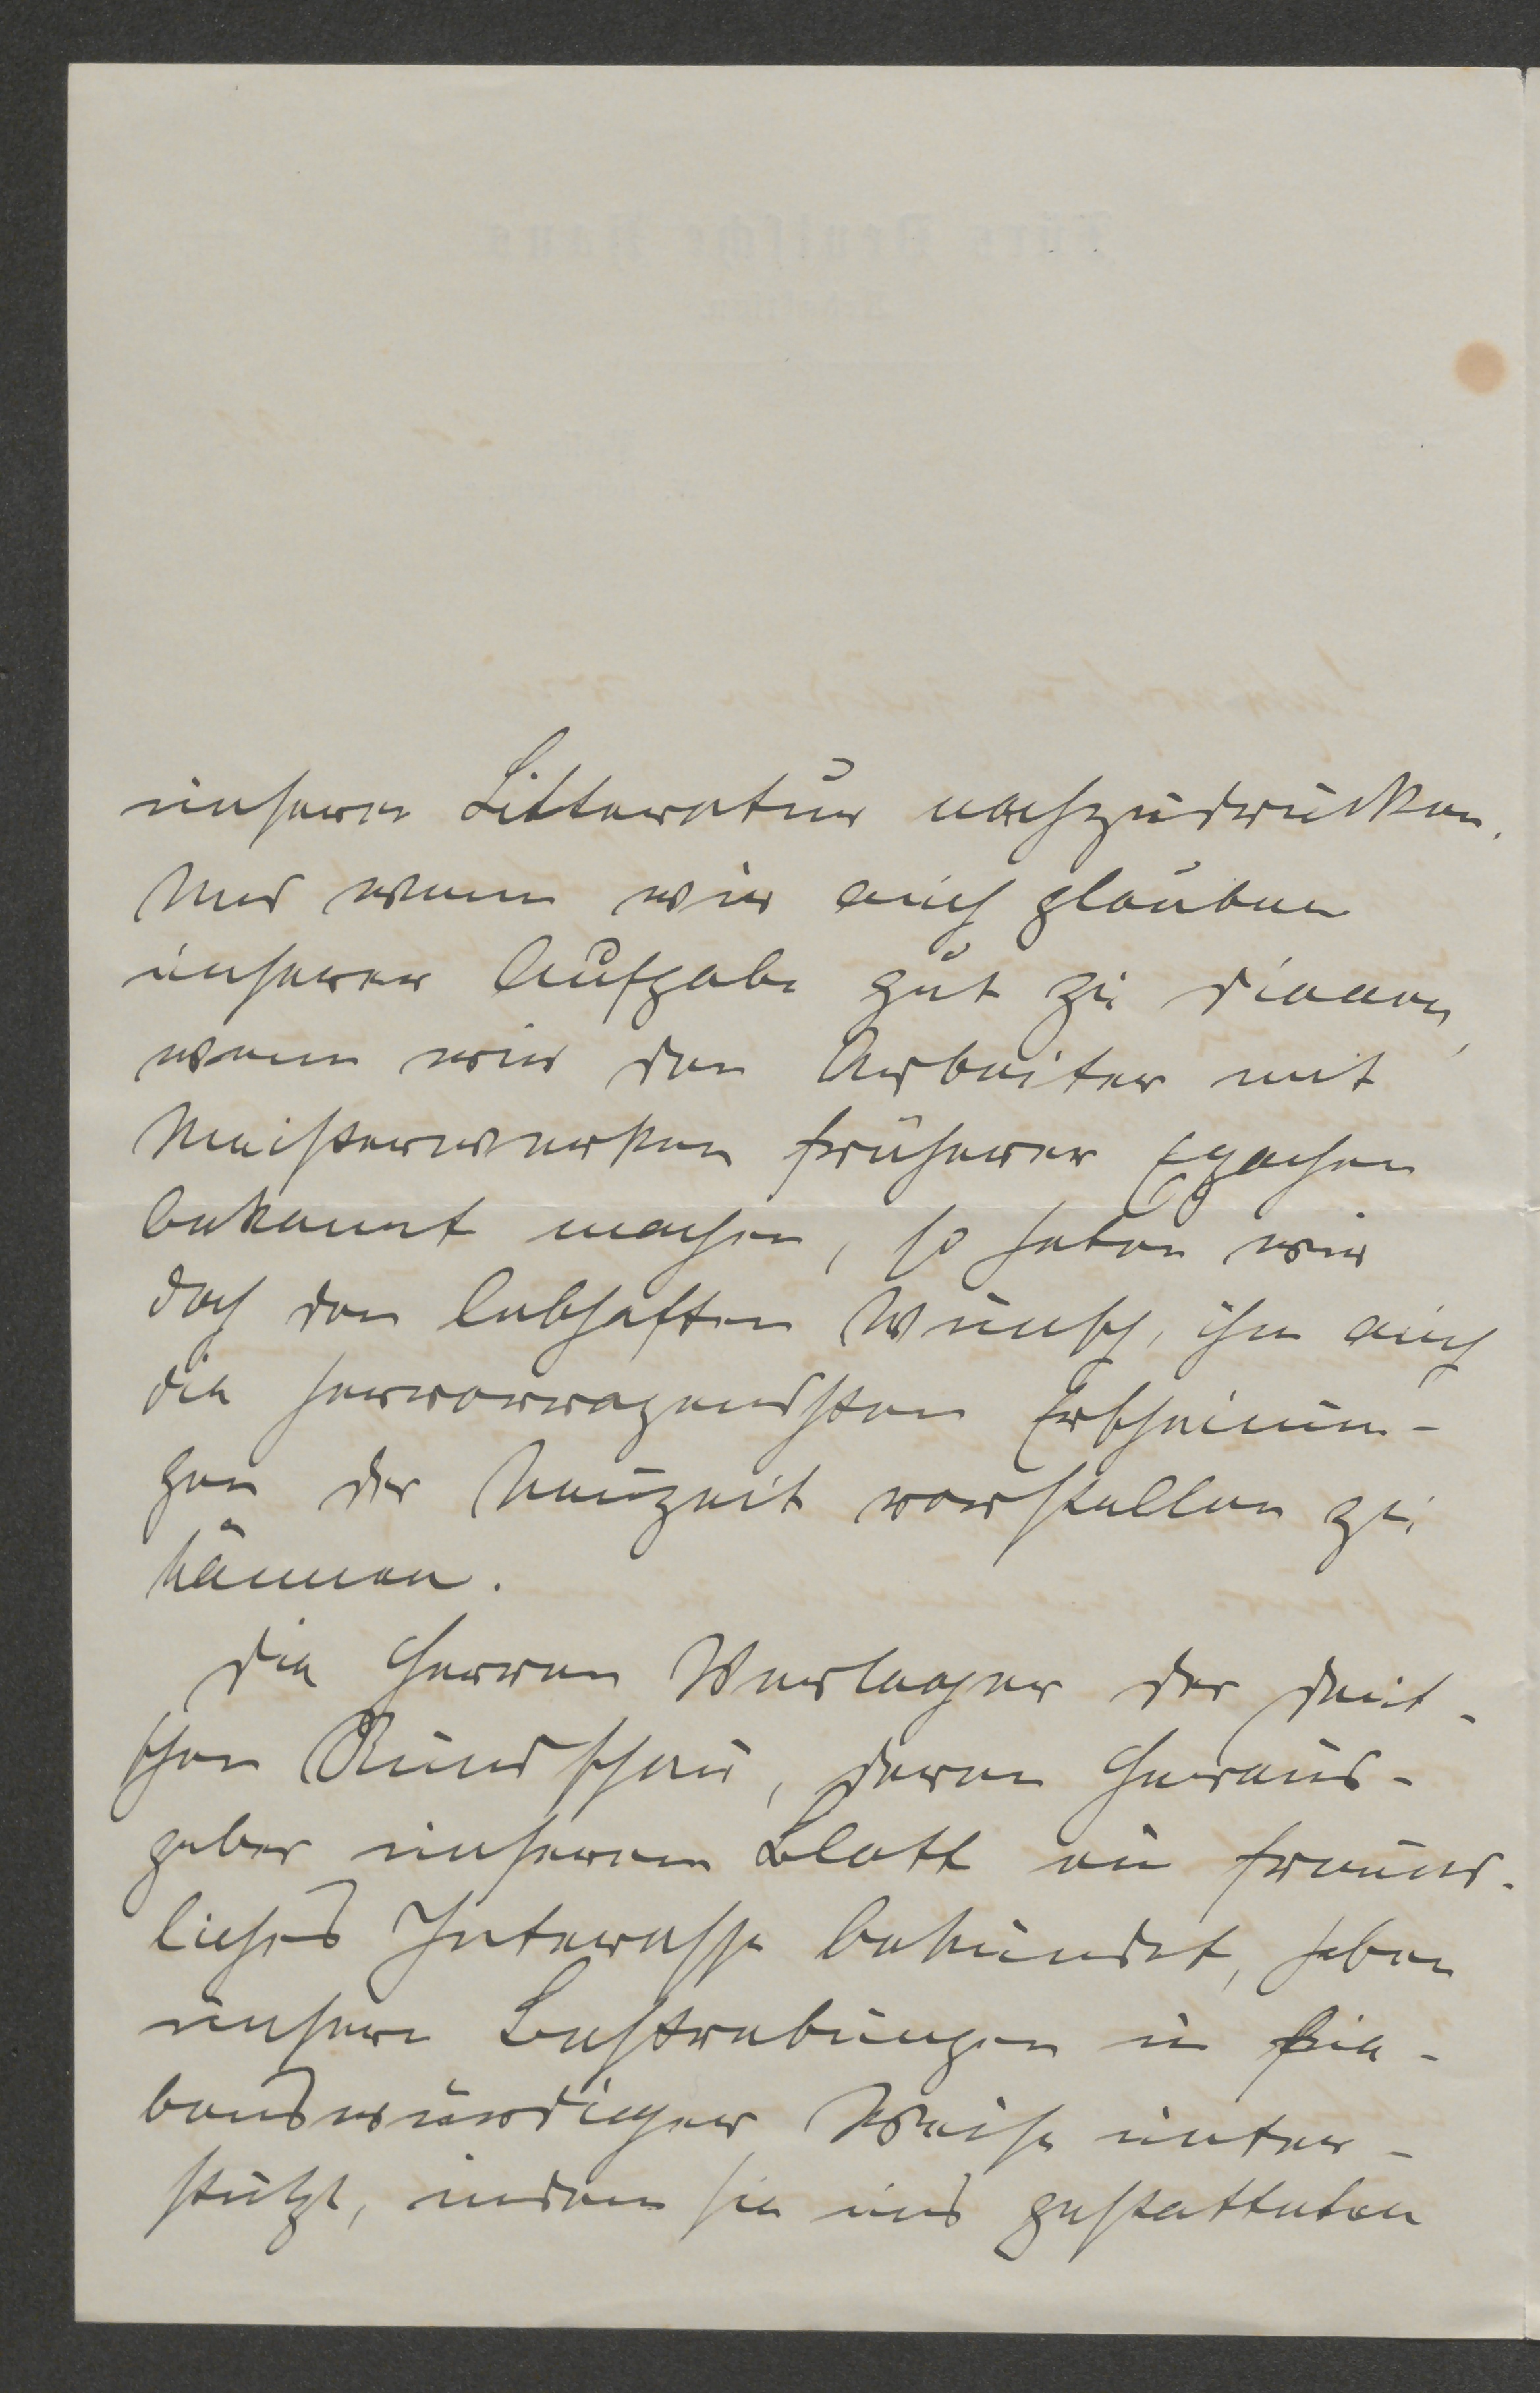 unserer Litteratur nachzudrucken.
Und wenn wir auch glauben
unserer Aufgabe gut zu dienen,
wenn wir den Arbeiter mit
Meisterwerken früherer Epochen
bekannt machen, so haben wir
doch den lebhaften Wunsch, ihn auch
die hervorragendsten Erscheinun-
gen der Neuzeit vorstellen zu
können.
Die Herren Verleger der Deut-
schen Rundschau, deren Heraus-
geber unserem Blatt ein freund-
liches Interesse bekundet, haben
unsere Bestrebungen in lie-
benswürdiger Weise unter-
stützt, indem sie uns gestatteten